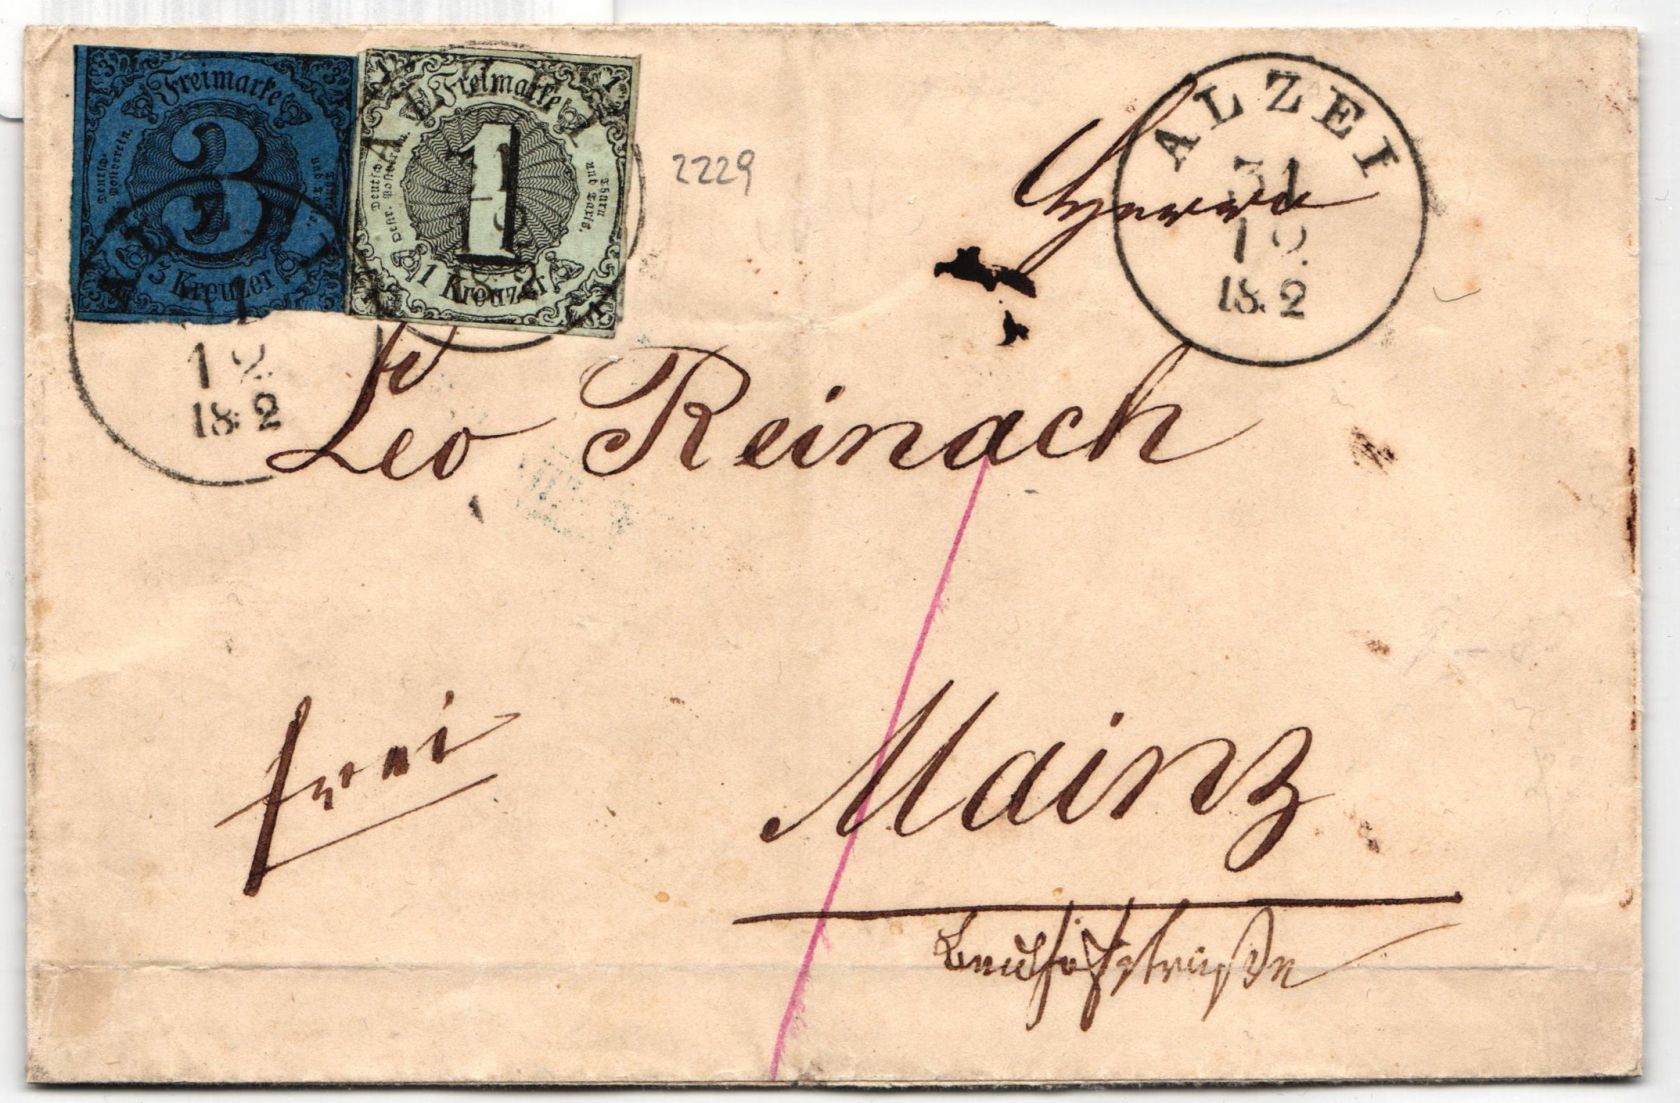 Freimarke
3
3 Kreuzer
Freimarke
1
1 Kreuzer
Thurn
und Taxis.
12
18 2
2229
ALZEI
31
12
18 2
Herrn
Leo Reinach
frei
Mainz